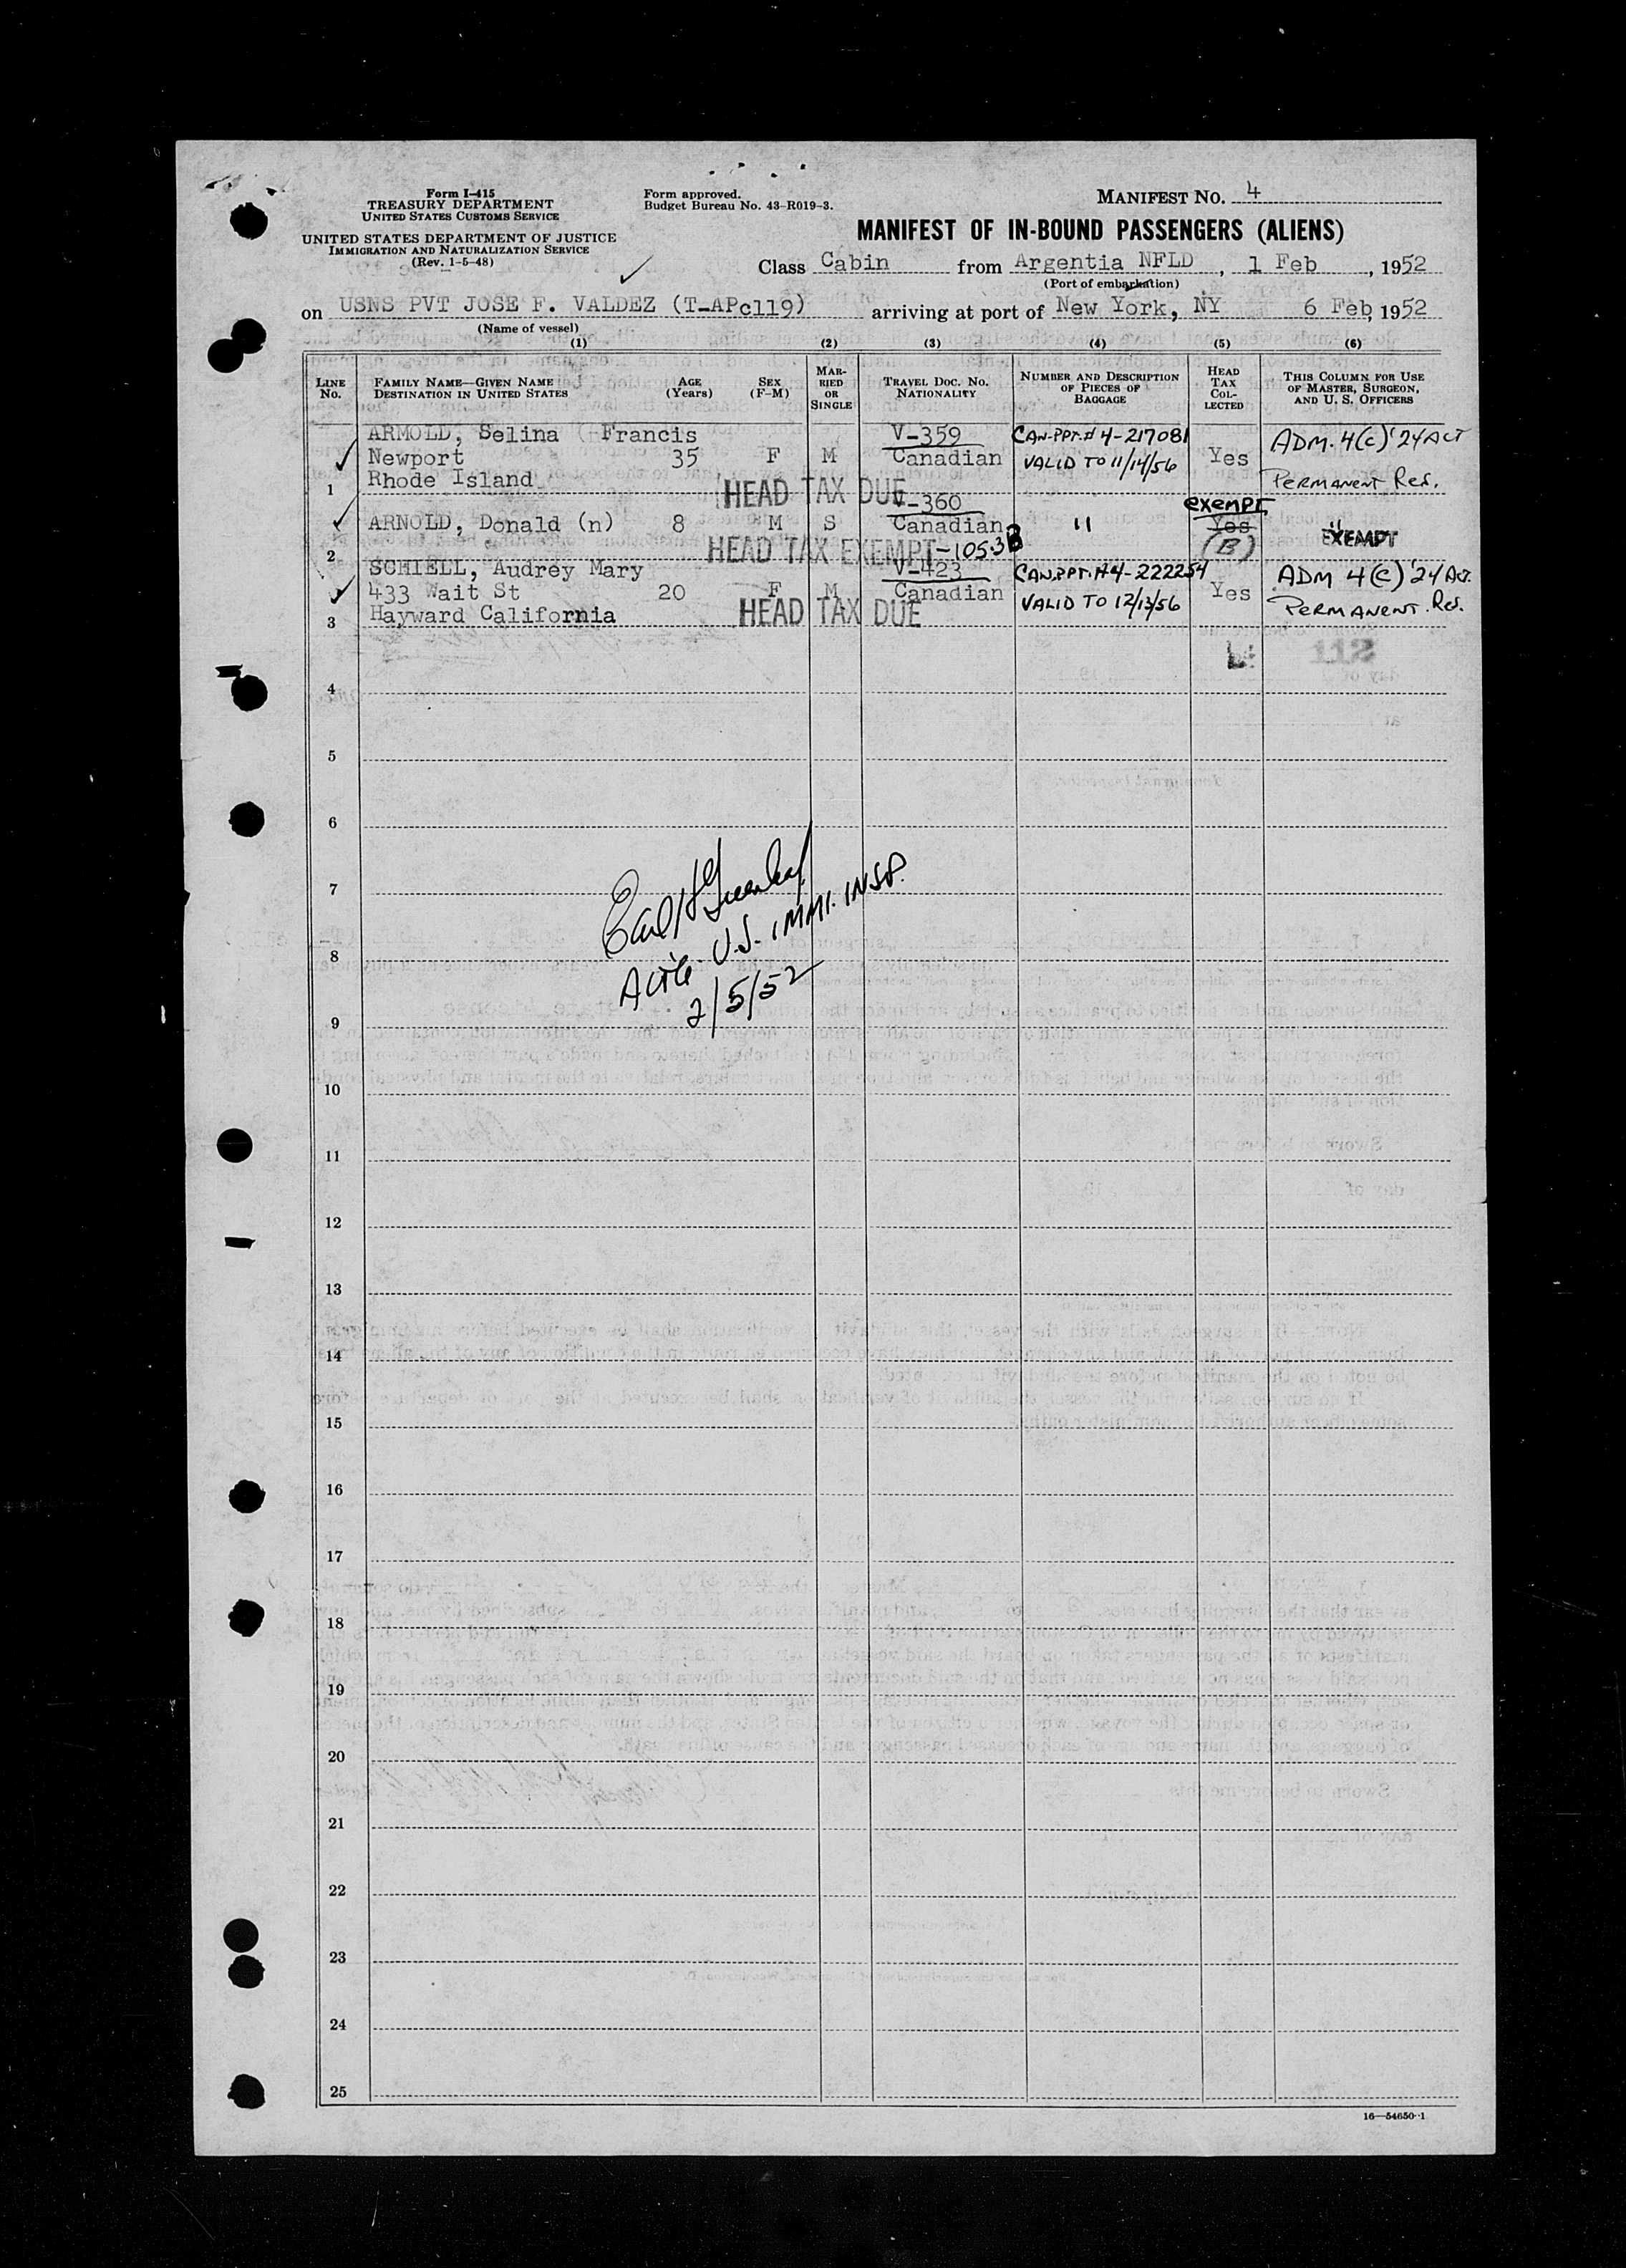 Form I-415
TREASURY DEPARTMENT
UNITED STATES CUSTOMS SERVICE
UNITED STATES DEPARTMENT OF JUSTICE
IMMIGRATION AND NATURALIZATION SERVICE
(Rev. 1-5-48)
Form approved.
Budget Bureau No. 43-R019-3.
MANIFEST NO. 4
MANIFEST OF IN-BOUND PASSENGERS (ALIENS)
Class Cabin from Argentia NFLD, 1 Feb, 1952
(Port of embarkation)
on USNS PVT JOSE F. VALDEZ (T-APc119) arriving at port of New York, NY 6 Feb, 1952
(Name of vessel)
(1) (2) (3) (4) (5) (6)
LINE No. FAMILY NAME—GIVEN NAME DESTINATION IN UNITED STATES AGE (Years) SEX (F-M) MARRIED OR SINGLE TRAVEL DOC. NO. NATIONALITY NUMBER AND DESCRIPTION OF PIECES OF BAGGAGE HEAD TAX COLLECTED THIS COLUMN FOR USE OF MASTER, SURGEON, AND U. S. OFFICERS
ARMOLD, Selina Francis V-359 CAN-PPT.# 4-217081 ADM. 4(c) '24 ACT
Newport 35 F M Canadian VALID TO 11/14/56 Yes
1 Rhode Island PERMANENT Res.
HEAD TAX DUE
V-360 exempt
ARNOLD, Donald (n) 8 M S Canadian " Yes "
2 HEAD TAX EXEMPT-105.3B (B) EXEMPT
SCHIELL, Audrey Mary V-423 CAN.PPT.#4-222254 ADM 4(c) '24 Act.
433 Wait St 20 F M Canadian VALID TO 12/13/56 Yes PERMANENT. Res.
3 Hayward California
HEAD TAX DUE
112
4
5
6
7
U.S. IMMI. INSP.
8
2/5/52
9
10
11
12
13
14
15
16
17
18
19
20
21
22
23
24
25
16—54650-1